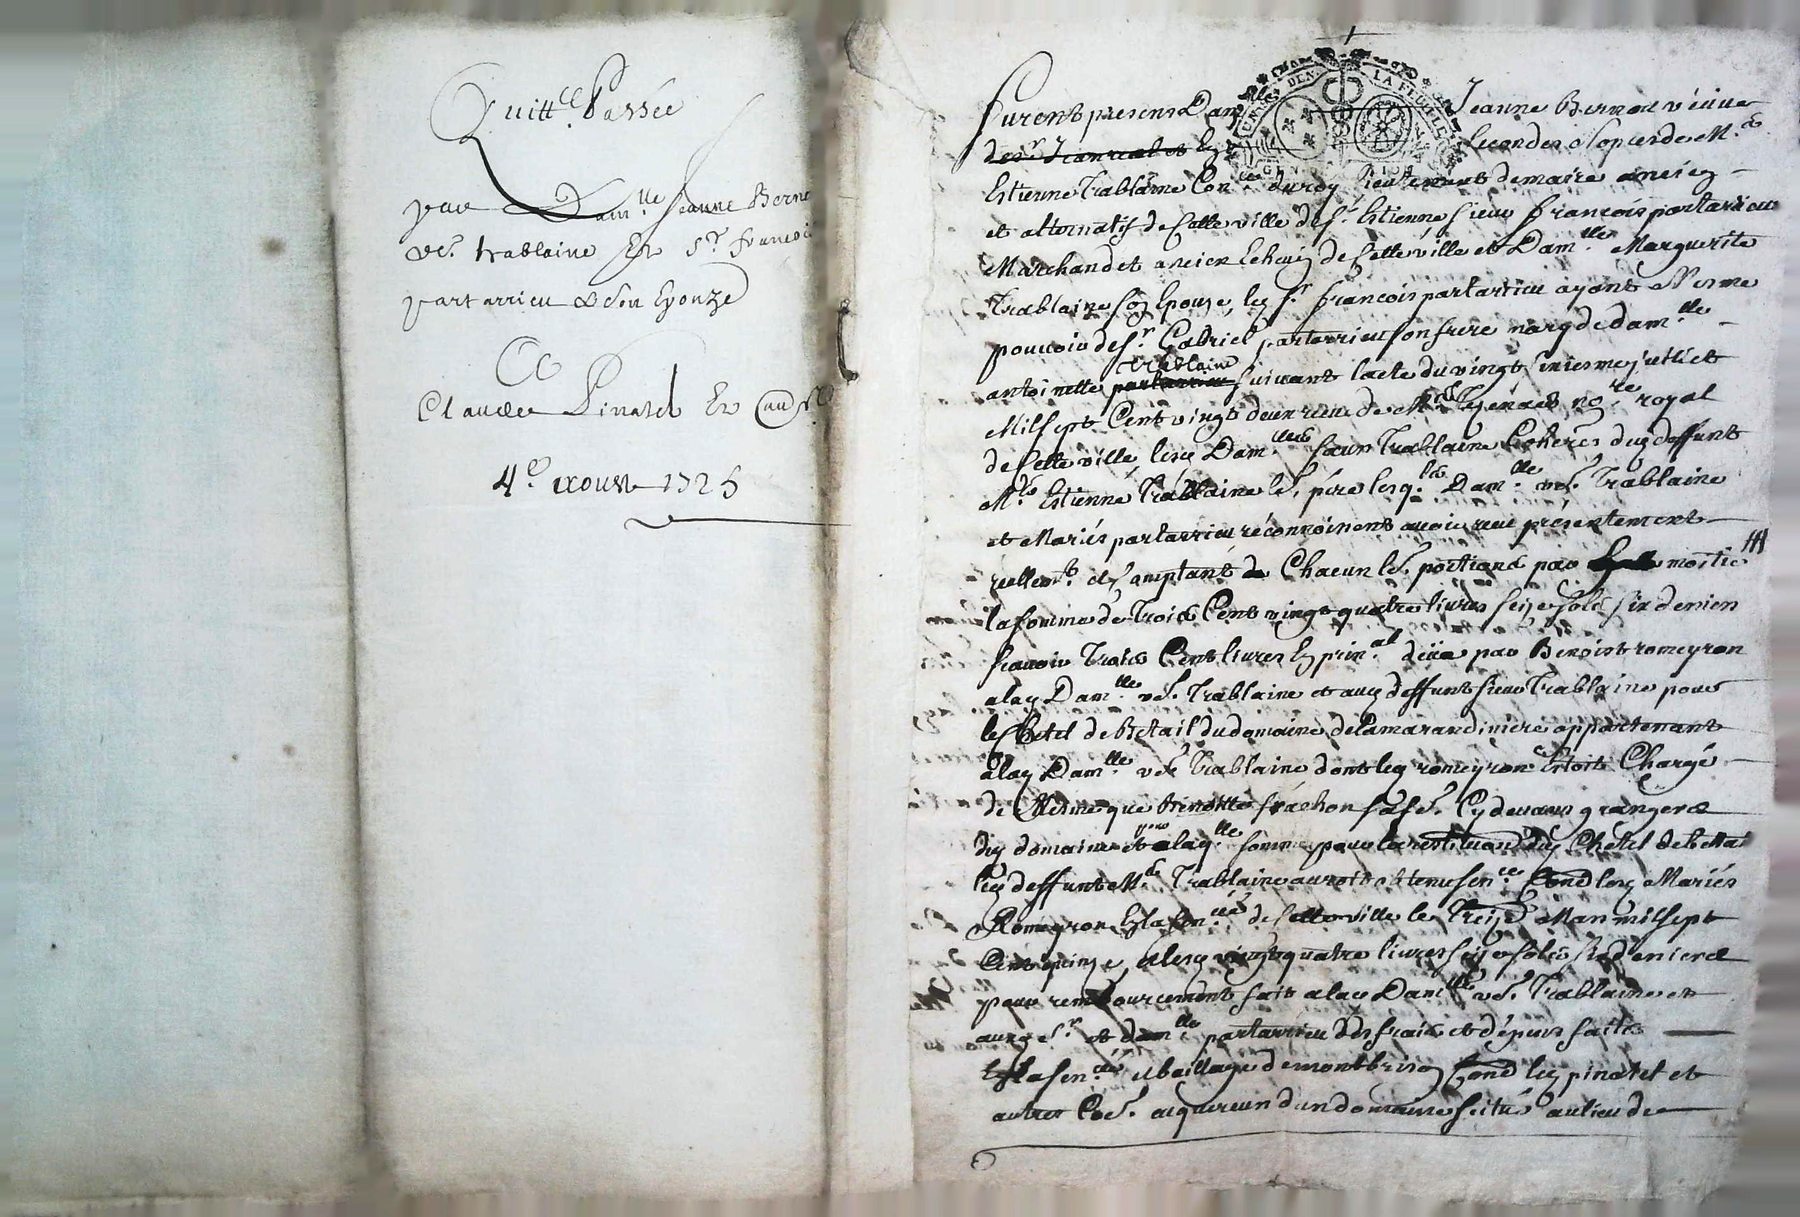 Quitt.ce Passée
par Dam.lle Jeanne Berno
ve. trablaine Et Sr. francois
partarrieu & son Epouze
A
Claude Pinatel Et
4e. aoust 1725
GEN DE LA
Furent presens Dam.lle Jeanne Bernou veuve
de sr. et secondes nopces de Me.
Estienne Trablaine Con.er du roy Lieutenant de maire ancien
et alternatif de Cette ville de St. Estienne sieur francois partarrieu
Marchand et ancien Echevin de Cette ville et Dam.lle Marguerite
Trablaine son Epouze, led sr. francois partarrieu ayant Charge
pouvoir de sr. Gabriel partarrieu son frere mary de dam.lle
trablaine
antoinette partarrieu suivant lacte du vingt juillet
Mil sept Cent vingt deux receu de Me. no.re royal
de Cette ville lesd Dam.lles sœurs Trablaine Coheres dud deffunt
Me. Estienne Trablaine le. pere lesq.ls Dam.lle ve. Trablaine
et Mariés partarrieu réconnoissent avoir receu présentement
réellem.t et Comptant de Chacun les. portions par moitié
la somme de Trois Cent vingt quatre livres seize sols six deniers
scavoir Trois Cent livres En prin.al deüe par Benoist romeyron
alad Dam.lle ve. Trablaine et aud deffunt sieur Trablaine pour
le Chetel de Bétail du domaine de Lamarandiniere appartenant
alad Dam.lle ve. Trablaine dont led romeyron Estoit Chargé
de Mesme que sa fe. Cy devant grangers
dud domaine et pour alaq.lle somme pour la restitution dud Chetel de betail
led deffunt Me. Trablaine auroit obtenu sen.ce Contre lesd Mariés
Romeyron En la sen.cée de Cette ville le Treize Mars mil sept
Cent quinze, et lesd vingt quatre livres seize sols six deniers
pour remboursement fait alad Dam.lle ve. Trablaine et
auxd sr. et dam.lle partarrieu des frais et dépens faits
En la sen.cée et baillage de montbrison Contre led pinatel et
autres Coe. acquereurs dun domaine scitué au lieu de